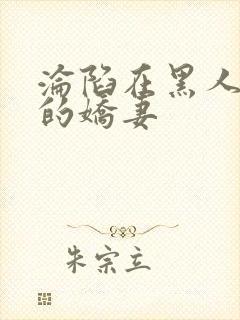 淪陷在黑人
的嬌妻
朱宗立